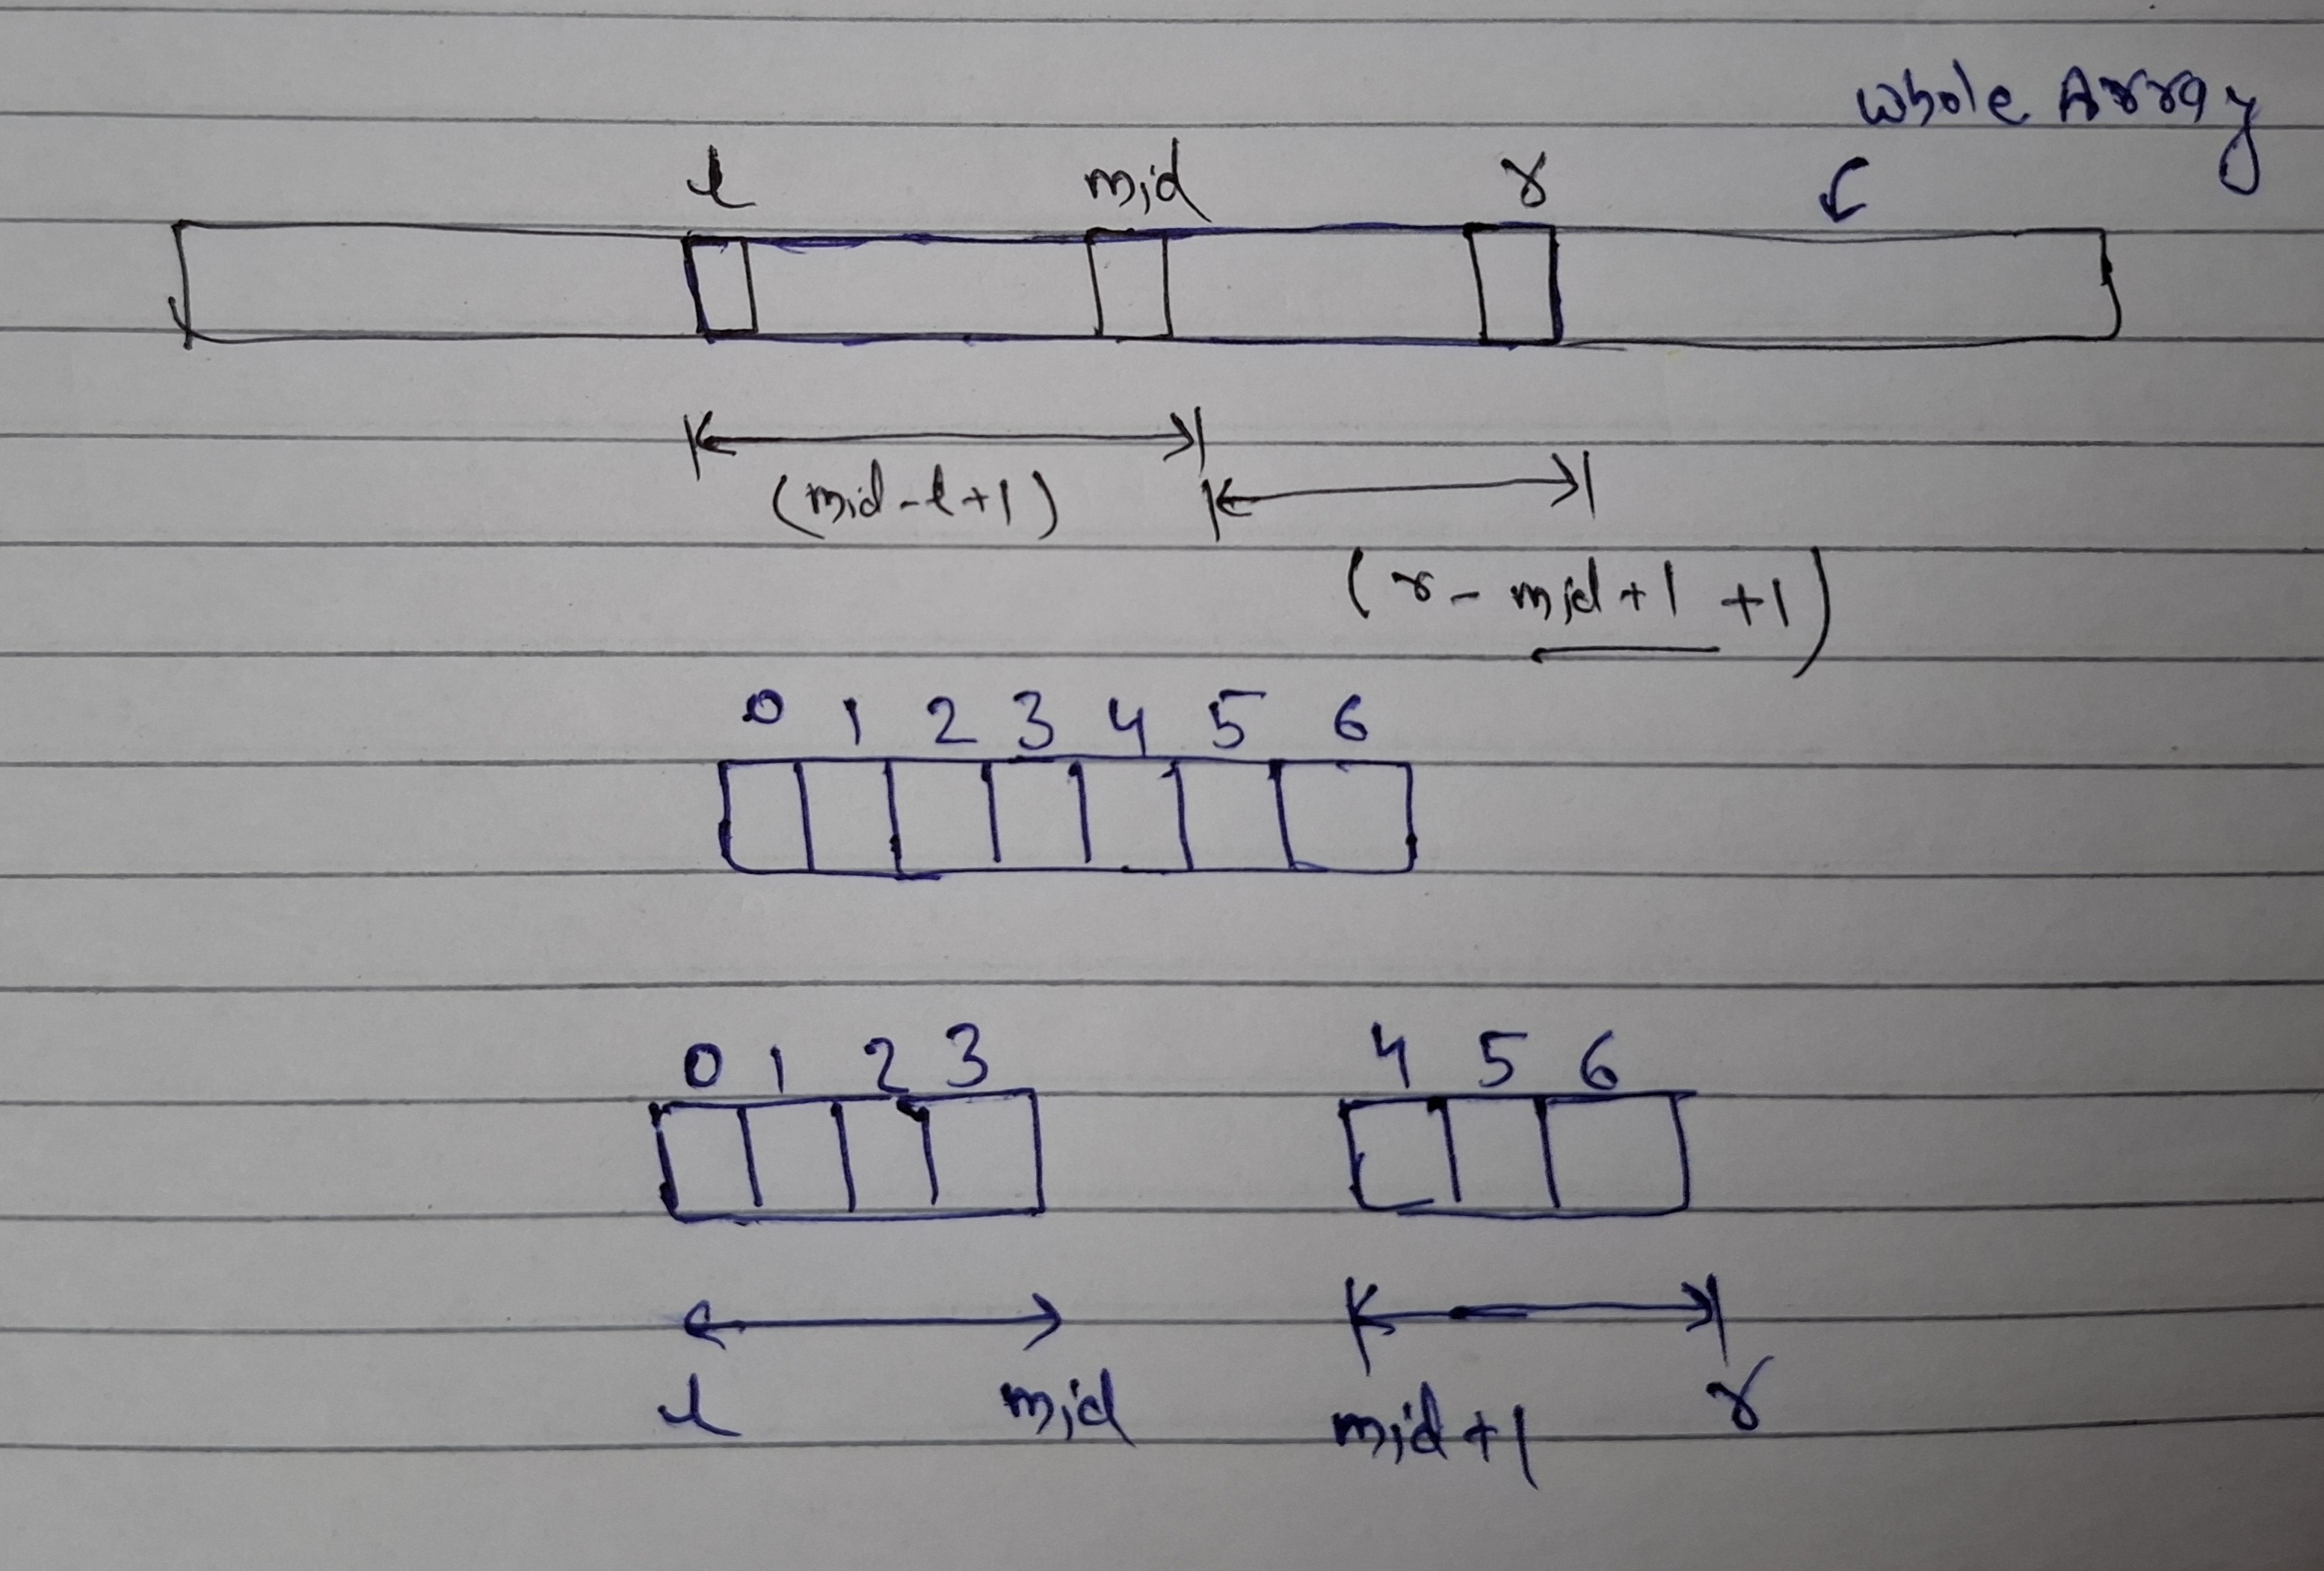 whole Array
l mid r
(mid-l+1)
(r - mid+1 +1)
0 1 2 3 4 5 6
0 1 2 3 4 5 6
l mid mid+1 r